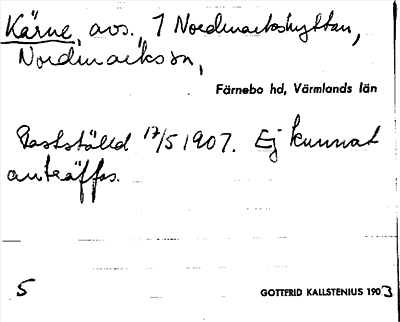 Kärne, avs. 1 Nordmarkshyttan,
Nordmarks sn,
Färnebo hd, Värmlands län
Fastställd 17/5 1907. Ej kunnat
anträffas.
5
GOTTFRID KALLSTENIUS 1903